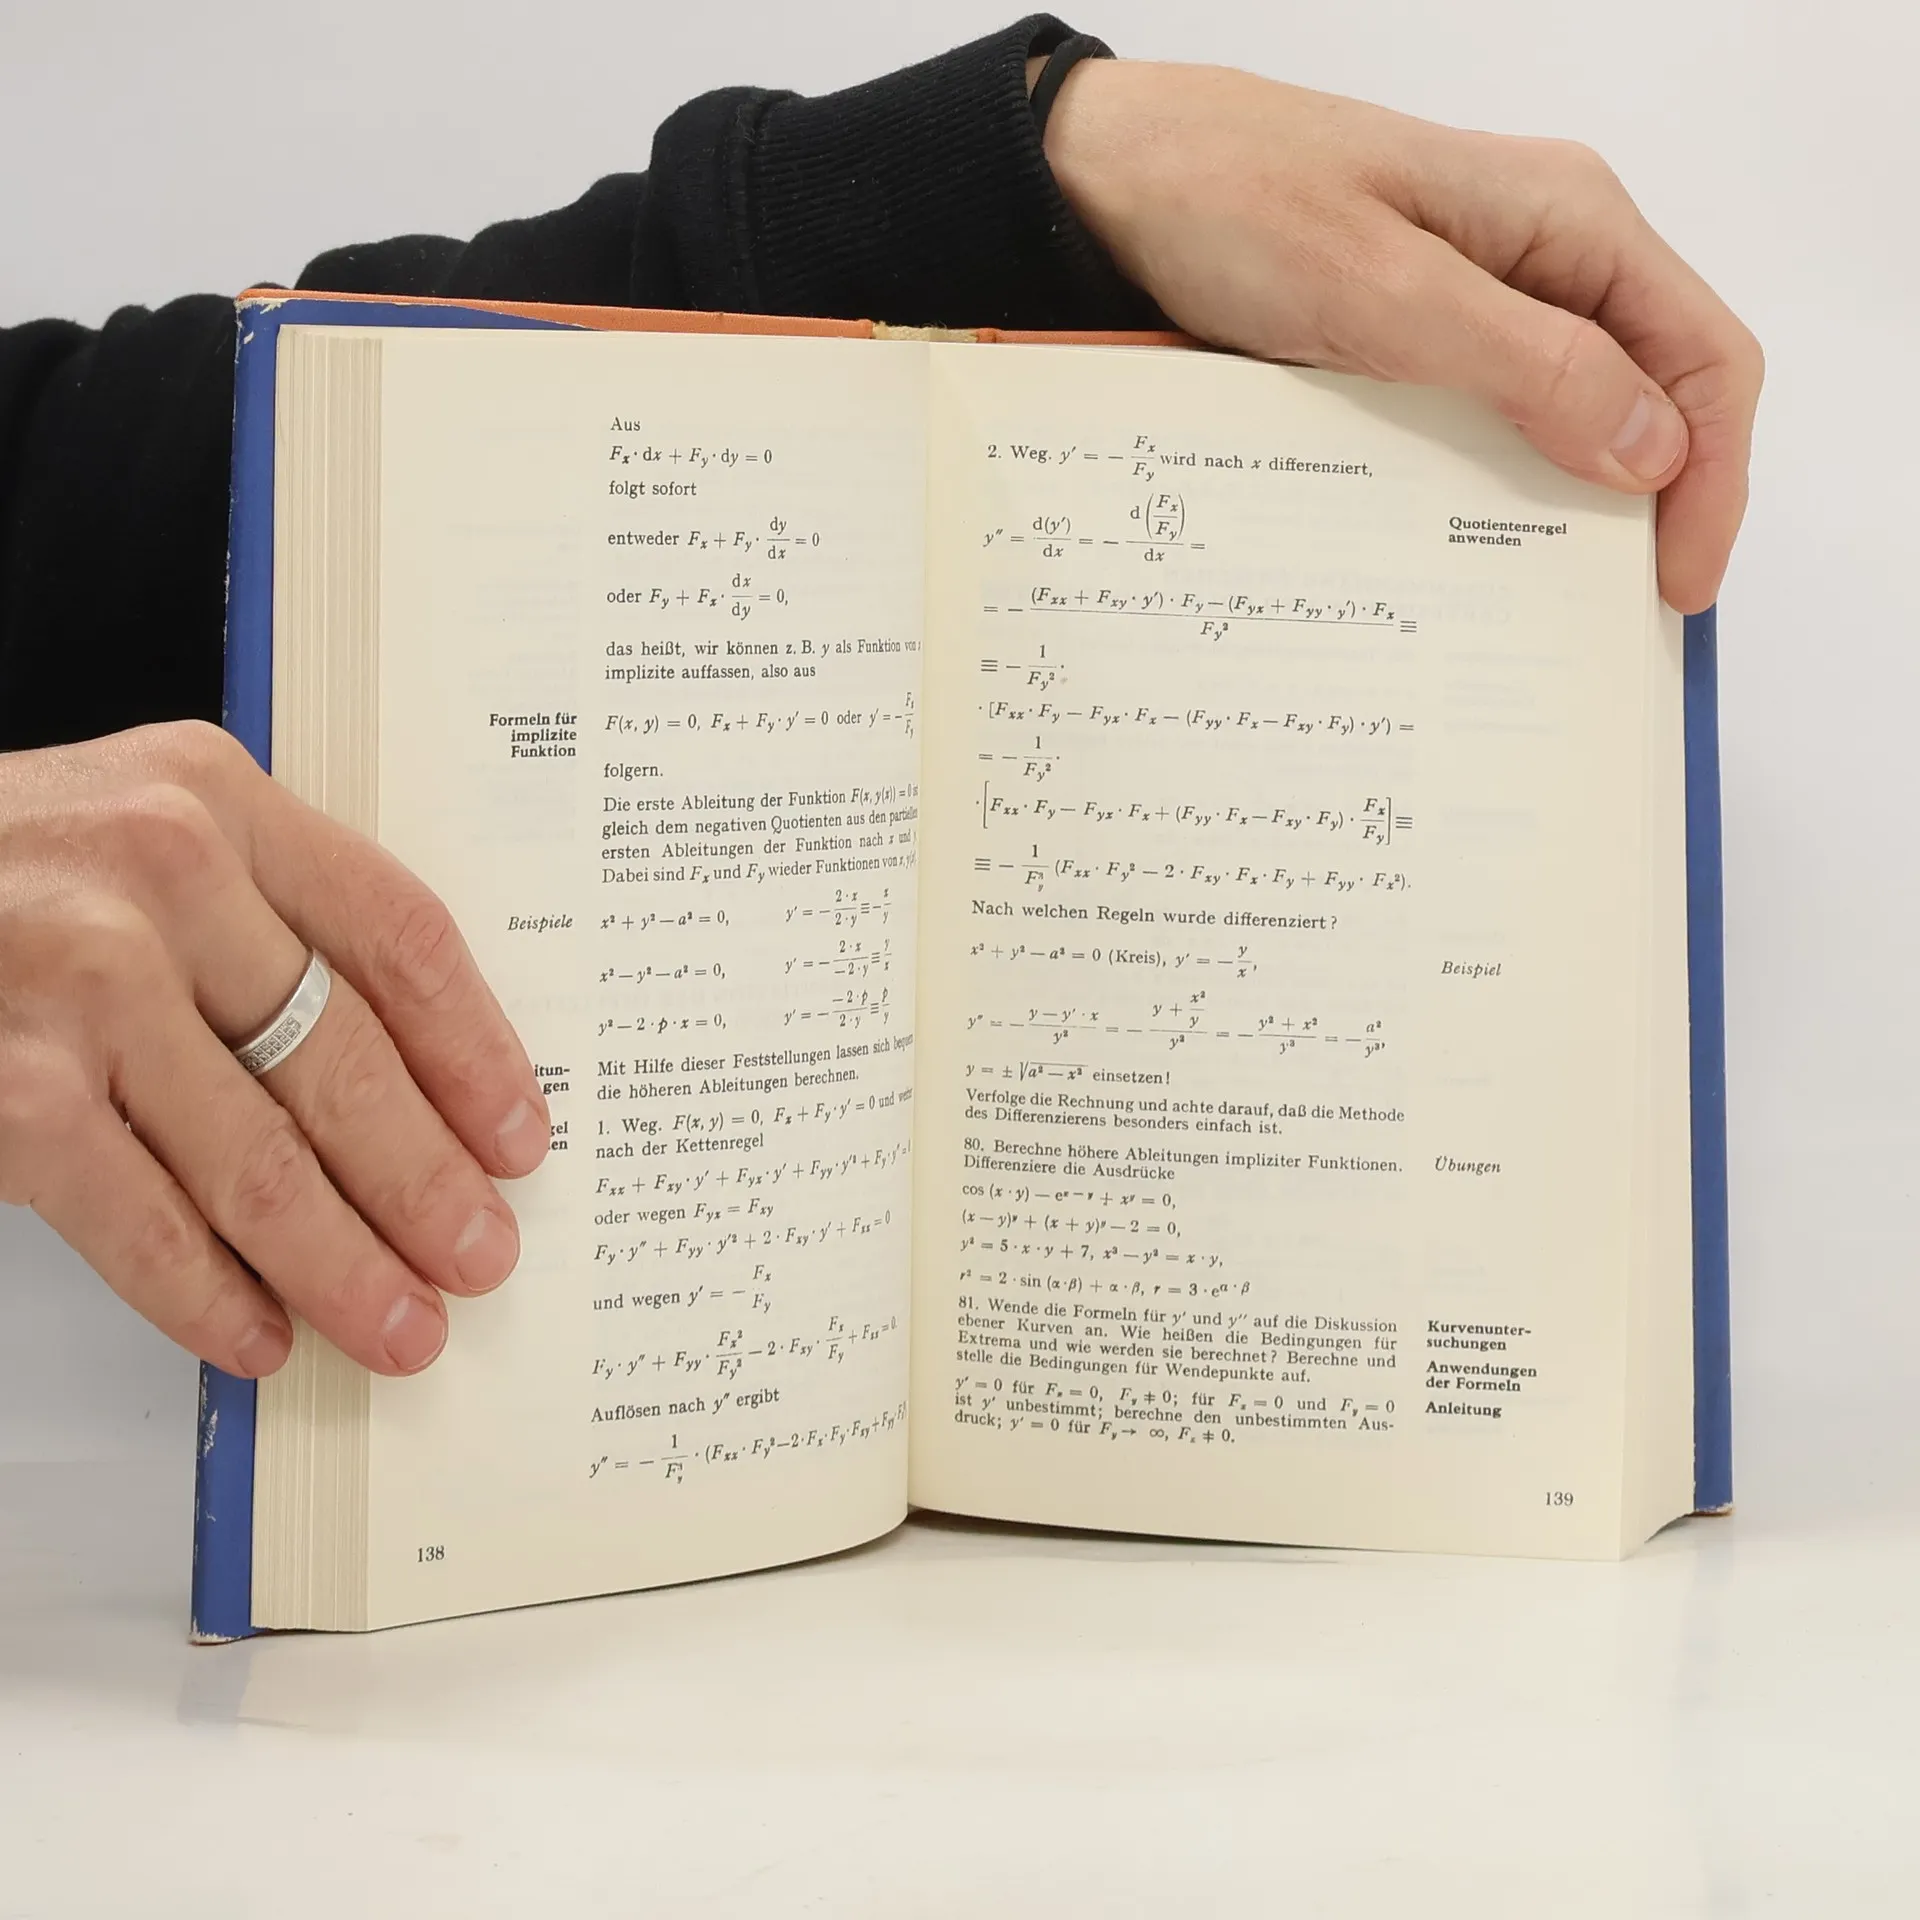 Aus
Fₓ · dx + F_y · dy = 0
folgt sofort
entweder Fₓ + F_y · dy/dx = 0
oder F_y + Fₓ · dx/dy = 0,
das heißt, wir können z. B. y als Funktion von
implizite auffassen, also aus
Formeln für
implizite
Funktion
F(x, y) = 0, Fₓ + F_y · y′ = 0 oder y′ = − Fₓ/F_y
folgern.
Die erste Ableitung der Funktion F(x, y(x)) = 0
gleich dem negativen Quotienten aus den partiellen
ersten Ableitungen der Funktion nach x und
Dabei sind Fₓ und F_y wieder Funktionen von x, y(x).
Beispiele
x² + y² − a² = 0, y′ = − 2·x/2·y ≡ − x/y
x² − y² − a² = 0, y′ = − 2·x/−2·y ≡
y² − 2 · p · x = 0, y′ = − −2·p/2·y ≡ p/y
Mit Hilfe dieser Feststellungen lassen sich
die höheren Ableitungen berechnen.
1. Weg. F(x, y) = 0, Fₓ + F_y · y′ = 0 und
nach der Kettenregel
Fₓₓ + Fₓ_y · y′ + F_yₓ · y′ + F_yy · y′² + F_y · y″ =
oder wegen F_yₓ = Fₓ_y
F_y · y″ + F_yy · y′² + 2 · Fₓ_y · y′ + Fₓₓ = 0
und wegen y′ = − Fₓ/F_y
F_y · y″ + F_yy · Fₓ²/F_y² − 2 · Fₓ_y · Fₓ/F_y + Fₓₓ = 0.
Auflösen nach y″ ergibt
y″ = − 1/F_y³ · (Fₓₓ · F_y² − 2 · Fₓ · F_y · Fₓ_y + F_yy ·
138
2. Weg. y′ = − Fₓ/F_y wird nach x differenziert,
y″ = d(y′)/dx = − d(Fₓ/F_y)/dx =
Quotientenregel
anwenden
= − (Fₓₓ + Fₓ_y · y′) · F_y − (F_yₓ + F_yy · y′) · Fₓ / F_y² ≡
≡ − 1/F_y² ·
· [Fₓₓ · F_y − F_yₓ · Fₓ − (F_yy · Fₓ − Fₓ_y · F_y) · y′) =
= − 1/F_y² ·
· [Fₓₓ · F_y − F_yₓ · Fₓ + (F_yy · Fₓ − Fₓ_y · F_y) · Fₓ/F_y] ≡
≡ − 1/F_y³ (Fₓₓ · F_y² − 2 · Fₓ_y · Fₓ · F_y + F_yy · Fₓ²).
Nach welchen Regeln wurde differenziert?
x² + y² − a² = 0 (Kreis), y′ = − y/x,
Beispiel
y″ = − y − y′ · x/y² = − y + x²/y/y² = − y² + x²/y³ = − a²/y³,
y = ± √a² − x² einsetzen!
Verfolge die Rechnung und achte darauf, daß die Methode
des Differenzierens besonders einfach ist.
80. Berechne höhere Ableitungen impliziter Funktionen.
Differenziere die Ausdrücke
Übungen
cos (x · y) − eˣ ⁻ ʸ + xʸ = 0,
(x − y)ʸ + (x + y)ʸ − 2 = 0,
y² = 5 · x · y + 7, x³ − y² = x · y,
r² = 2 · sin (α·β) + α · β, r = 3 · e^α · β
81. Wende die Formeln für y′ und y″ auf die Diskussion
ebener Kurven an. Wie heißen die Bedingungen für
Extrema und wie werden sie berechnet? Berechne und
stelle die Bedingungen für Wendepunkte auf.
Kurvenunter-
suchungen
Anwendungen
der Formeln
y′ = 0 für Fₓ = 0, F_y ≠ 0; für Fₓ = 0 und F_y = 0
ist y′ unbestimmt; berechne den unbestimmten Aus-
druck; y′ = 0 für F_y → ∞, Fₓ ≠ 0.
Anleitung
139